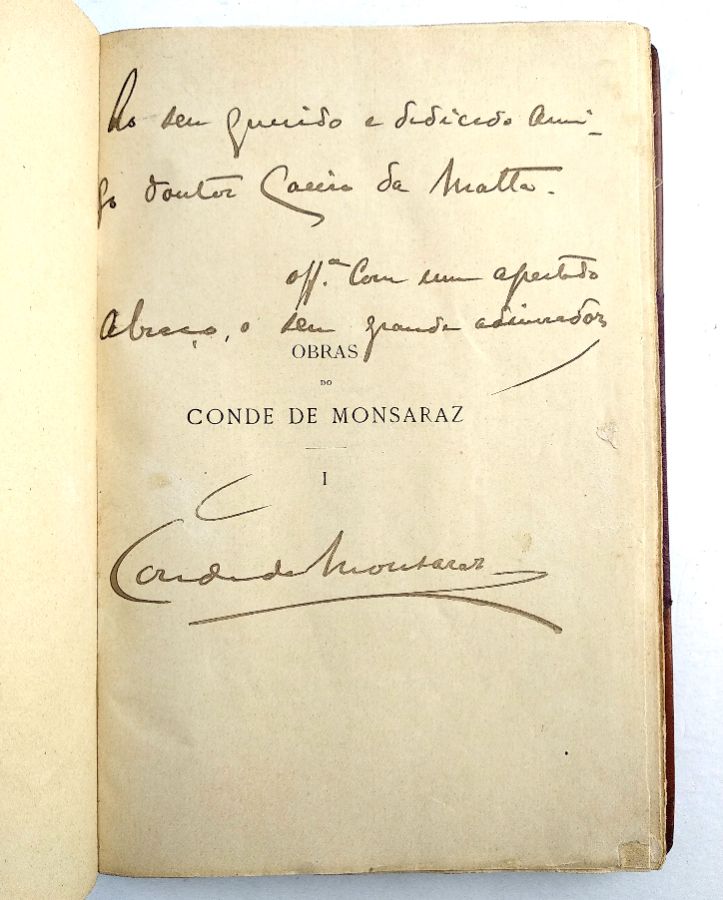 Ao seu querido e dedicado ami-
go doutor Caeiro da Matta.
off.ª com um apertado
abraço, o seu grande admirador
OBRAS
DO
CONDE DE MONSARAZ
I
Conde de Monsaraz